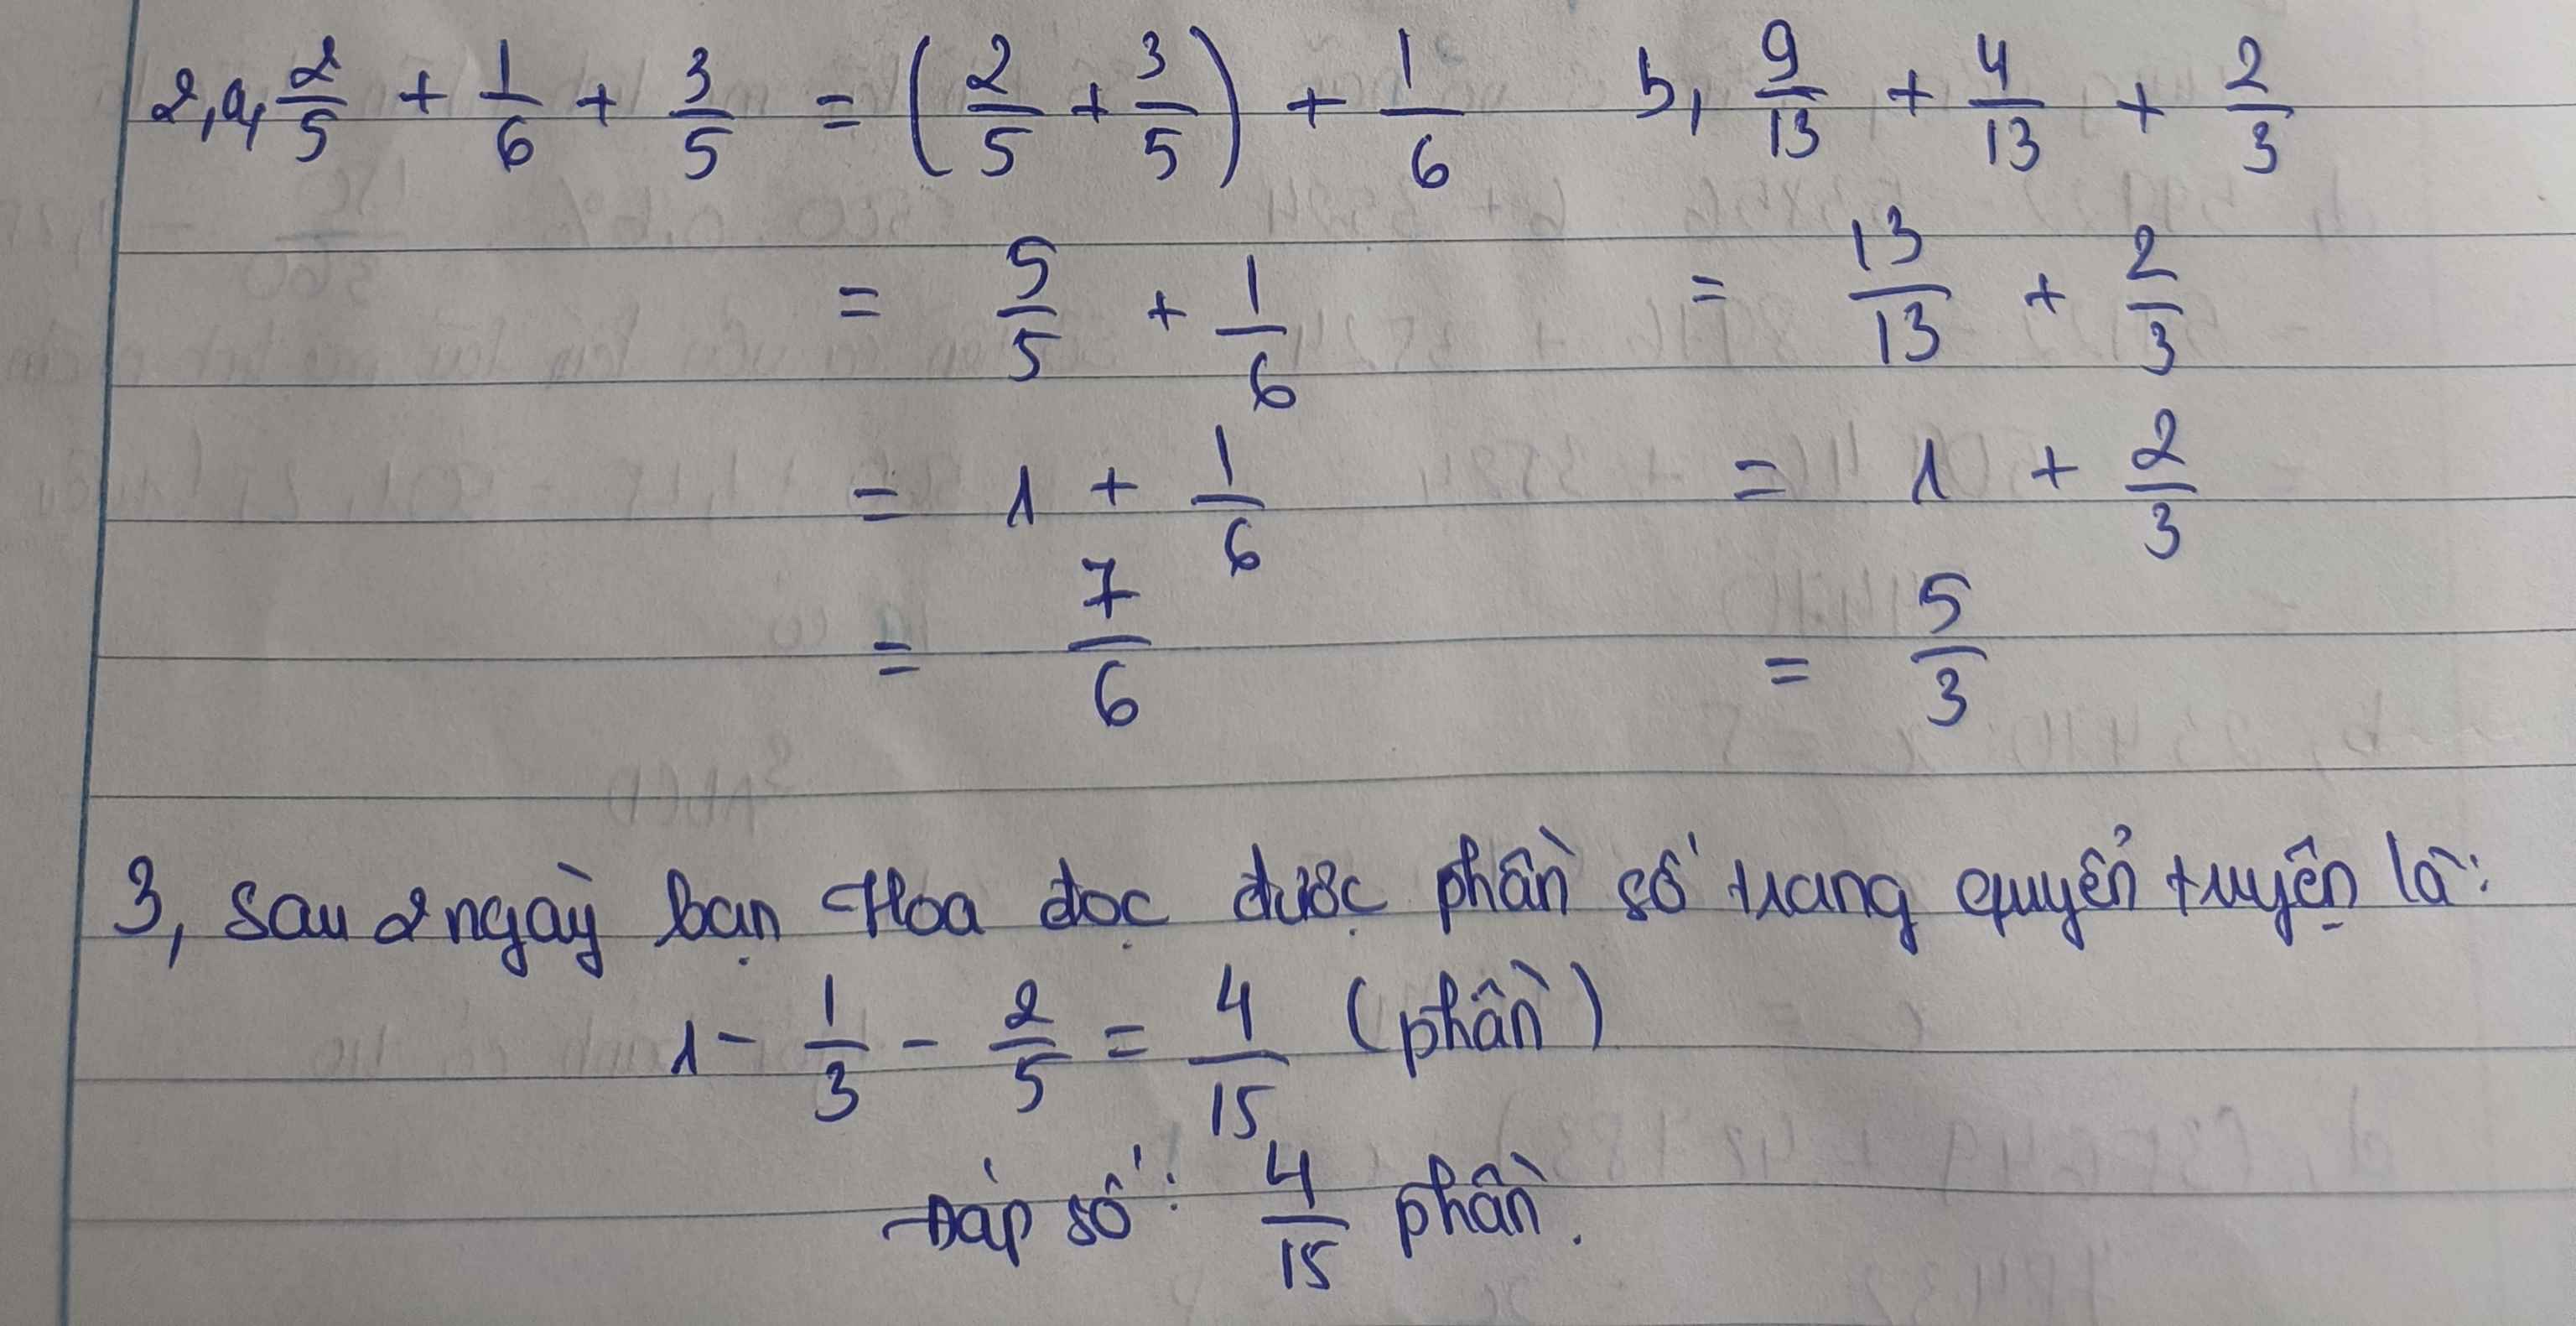 2, a, 2/5 + 1/6 + 3/5 = (2/5 + 3/5) + 1/6
= 5/5 + 1/6
= 1 + 1/6
= 7/6
b, 9/13 + 4/13 + 2/3
= 13/13 + 2/3
= 1 + 2/3
= 5/3
3, Sau 2 ngày bạn Hoa đọc được phần số trang quyển truyện là:
1 - 1/3 - 2/5 = 4/15 (phần)
Đáp số: 4/15 phần.